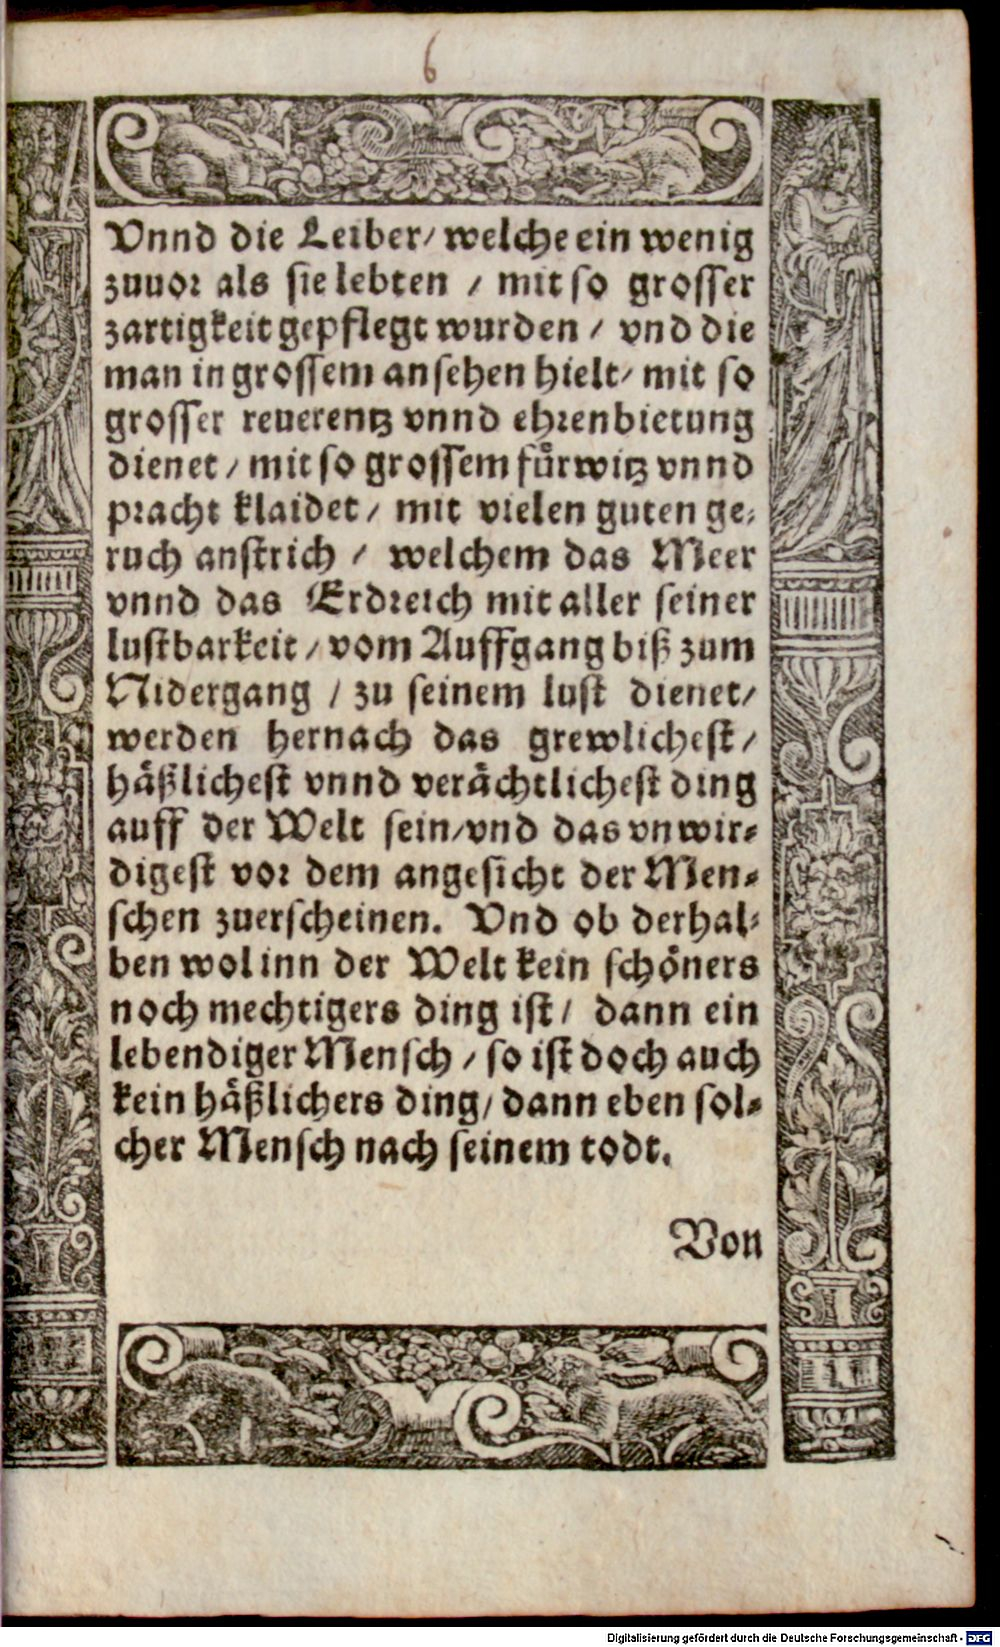 6
Vnnd die Leiber/ welche ein wenig
zuuor als sie lebten / mit so grosser
zartigkeit gepflegt wurden / vnd die
man in grossem ansehen hielt/ mit so
grosser reuerentz vnnd ehrenbietung
dienet / mit so grossem fürwitz vnnd
pracht klaidet / mit vielen guten ge-
ruch anstrich / welchem das Meer
vnnd das Erdreich mit aller seiner
lustbarkeit / vom Auffgang biß zum
Nidergang / zu seinem lust dienet/
werden hernach das grewlichest /
häßlichest vnnd verächtlichest ding
auff der Welt sein/vnd das vnwir-
digest vor dem angesicht der Men-
schen zuerscheinen. Vnd ob derhal-
ben wol inn der Welt kein schöners
noch mechtigers ding ist / dann ein
lebendiger Mensch / so ist doch auch
kein häßlichers ding/ dann eben sol-
cher Mensch nach seinem todt.
Von
Digitalisierung gefördert durch die Deutsche Forschungsgemeinschaft - DFG